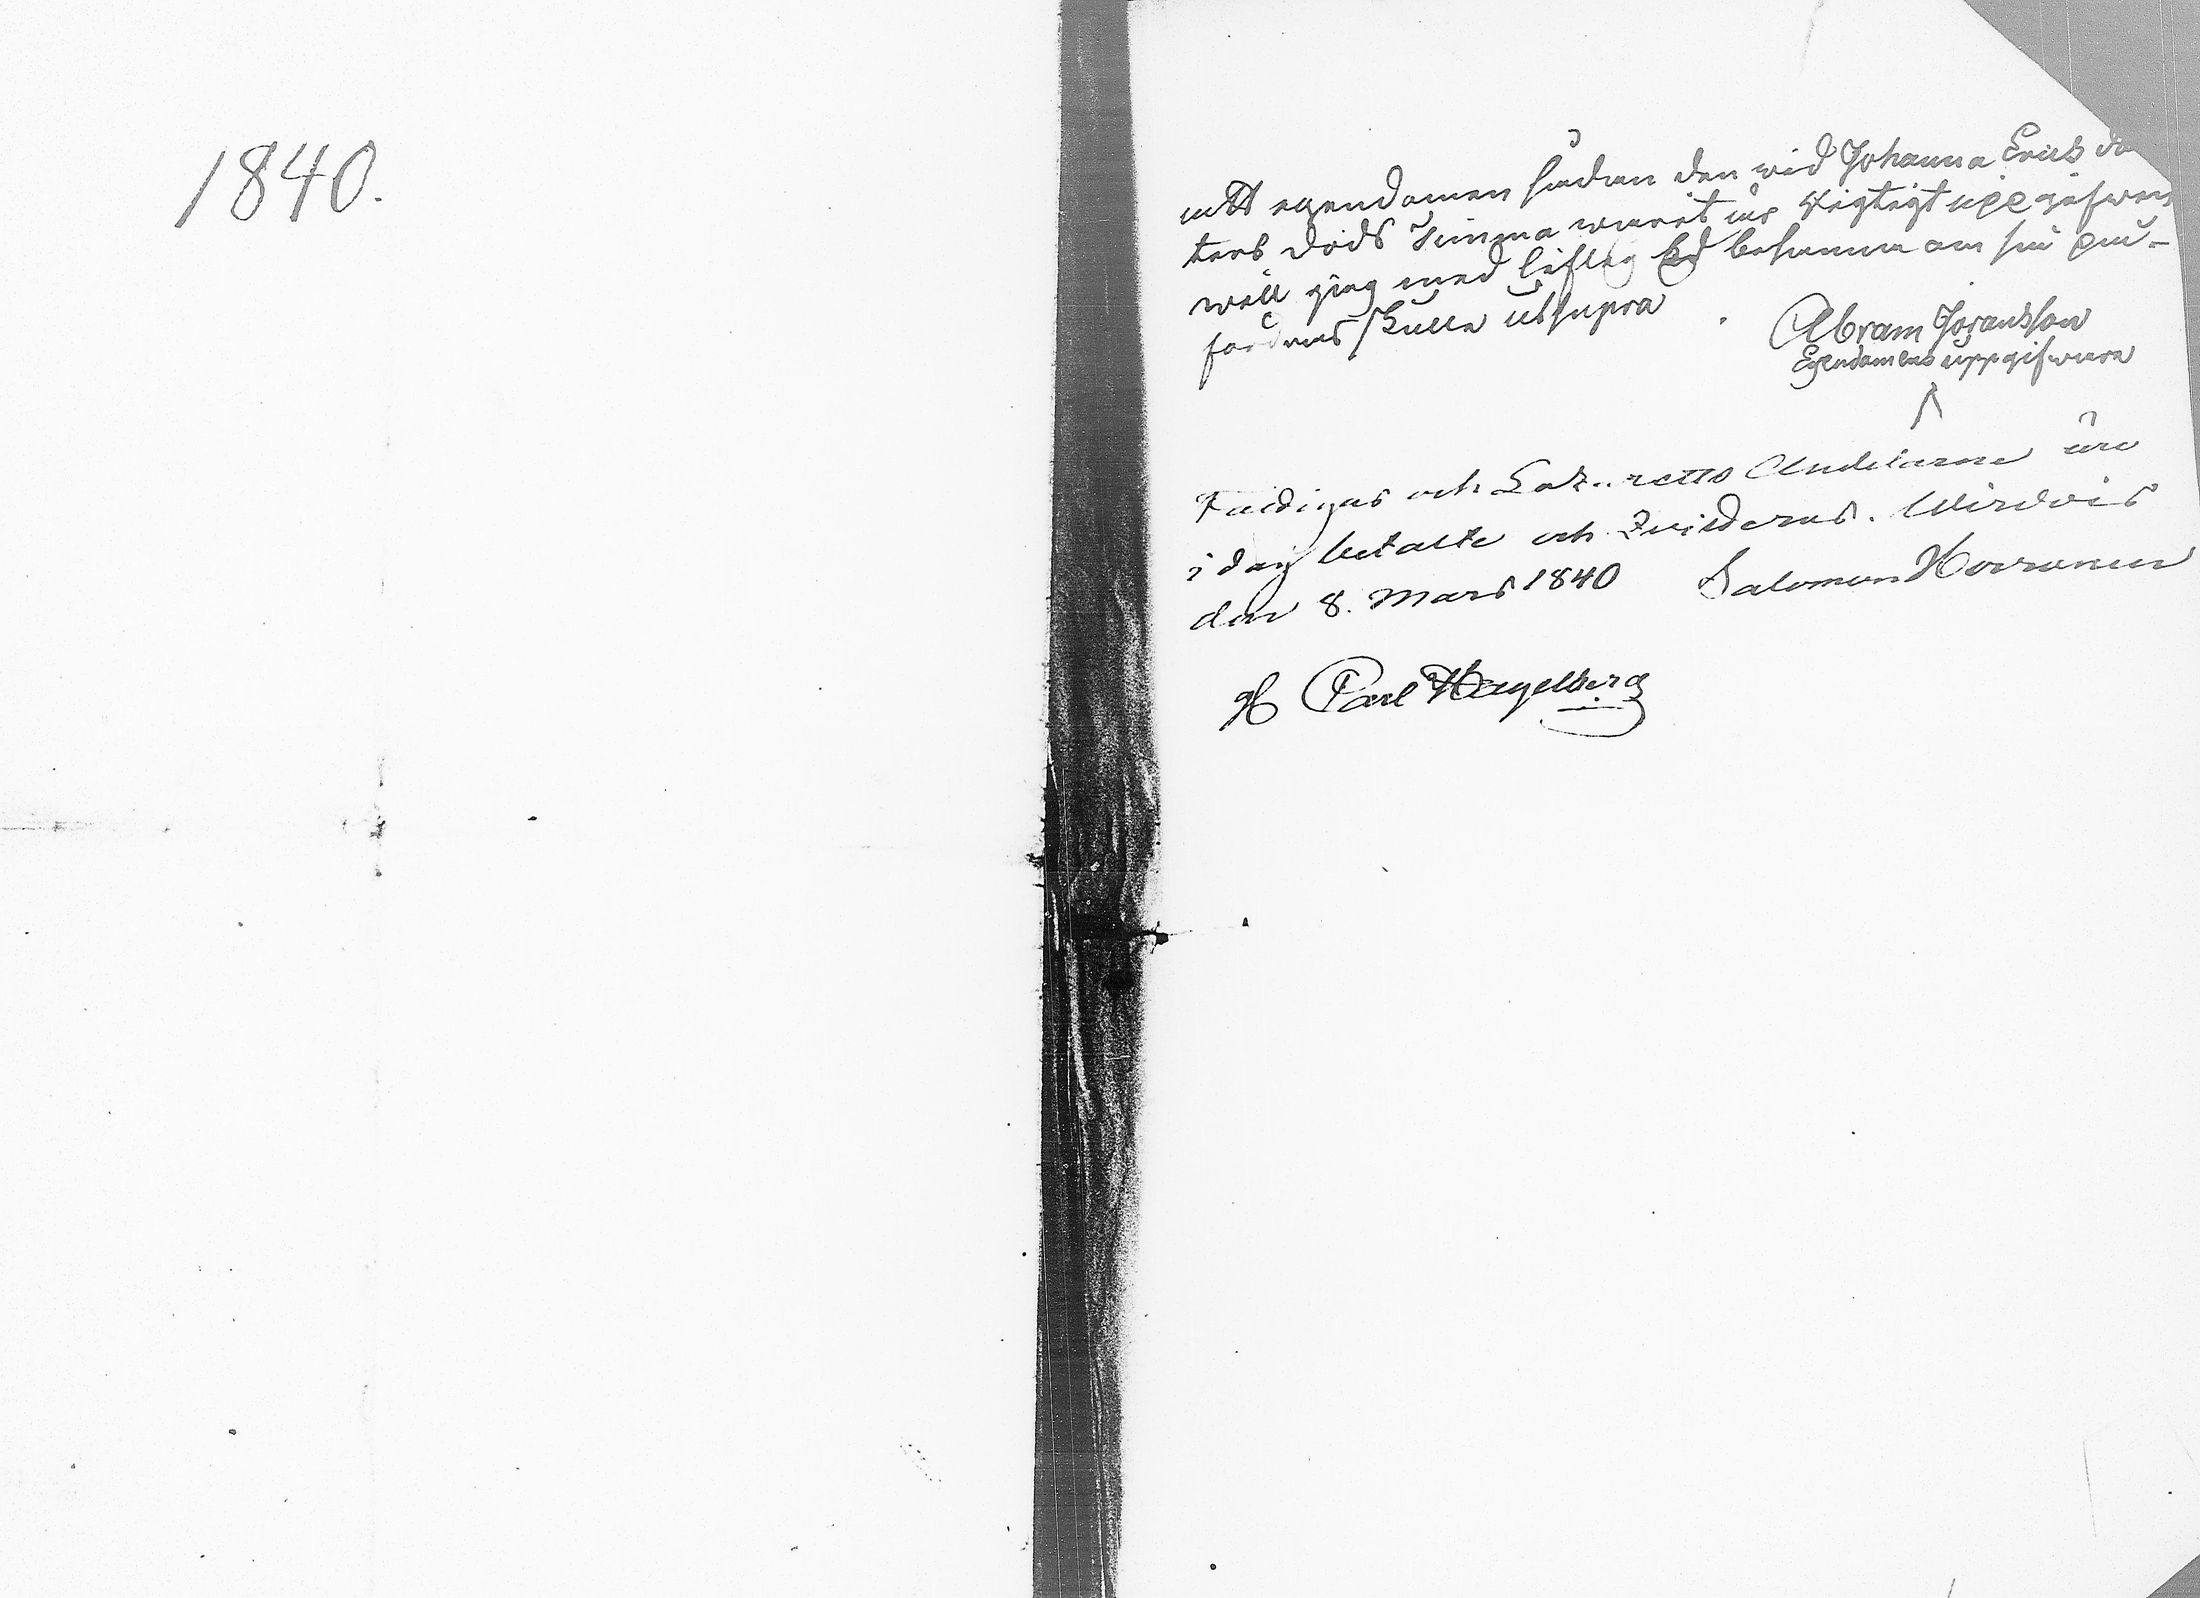 1840.
att egendomen sådan den wid Johanna Ericks do
ters döds timma warit är rigtigt uppgifwen
will jag med liflig Ed bekänna om så på-
fordras skulle utsupra
Abram Joransson
Egendomens uppgifware
Fattigas och Lazaretts Andelarne äro
i dag betalte och qvitteras. Wirdois
den 8. Mars 1840 Salomon Horronen
Carl Hagelberg